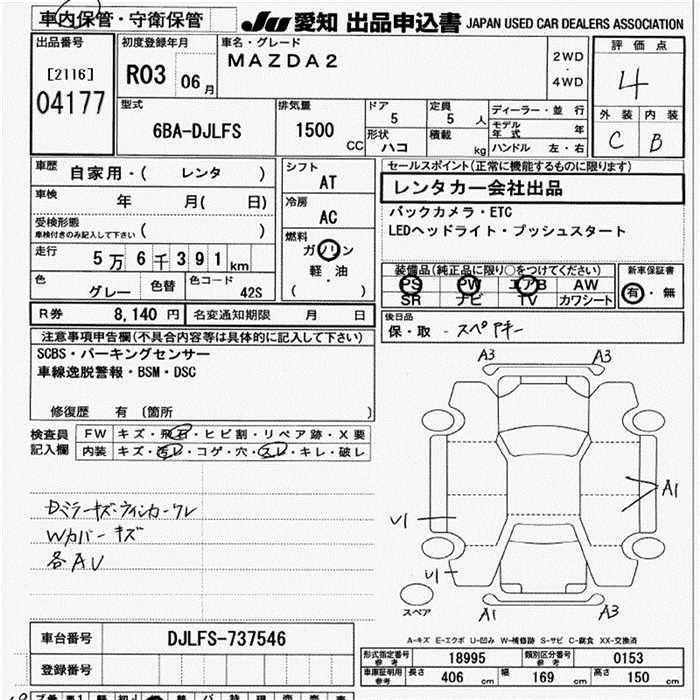 車内保管・守衛保管 JU 愛知 出品申込書 JAPAN USED CAR DEALERS ASSOCIATION
出品番号 初度登録年月 車名・グレード 評価点
[2116] R03 06月 MAZDA2 2WD・4WD 4
04177
型式 排気量 ドア 定員 ディーラー・並行 外装 内装
6BA-DJLFS 1500 CC 5 5人 モデル年式 年 C B
形状 積載
ハコ kg ハンドル 左・右
車歴 自家用・( レンタ ) シフト セールスポイント(正常に機能するものに限ります)
AT レンタカー会社出品
車検 年 月( 日) 冷房 バックカメラ・ETC
受検形態 AC LEDヘッドライト・プッシュスタート
車検付きのみ記入して下さい ( )
走行 5万6千391km 燃料
ガソリン
軽・油
( )
装備品(純品品に限り○をつけてください) 新車保証書
PS PW エアB AW 有・無
SR ナビ TV カワシート
色 グレー 色替 色コード 42S
R券 8,140円 名変通知期限 月 日 後日品
保・取 - スペアキー
注意事項申告欄(不具合内容等は具体的に記入して下さい)
SCBS・パーキングセンサー
車線逸脱警報・BSM・DSC
修復歴 有 (箇所 )
検査員記入欄 FW キズ・飛石・ヒビ割・リペア跡・X要
内装 キズ・汚レ・コゲ・穴・スレ・キレ・破レ
Dミラーキズ・ウィンカーワレ
Wカバーキズ
各AU
A3 A3
A1
U1
U1
スペア A1 A3
A-キズ E-エクボ U-凹み W-補修跡 S-サビ C-腐食 XX-交換済
車台番号 DJLFS-737546
登録番号
形式指定番号 参考 18995 類別区分番号 参考 0153
車庫証明用 参考 長さ 406 cm 幅 169 cm 高さ 150 cm